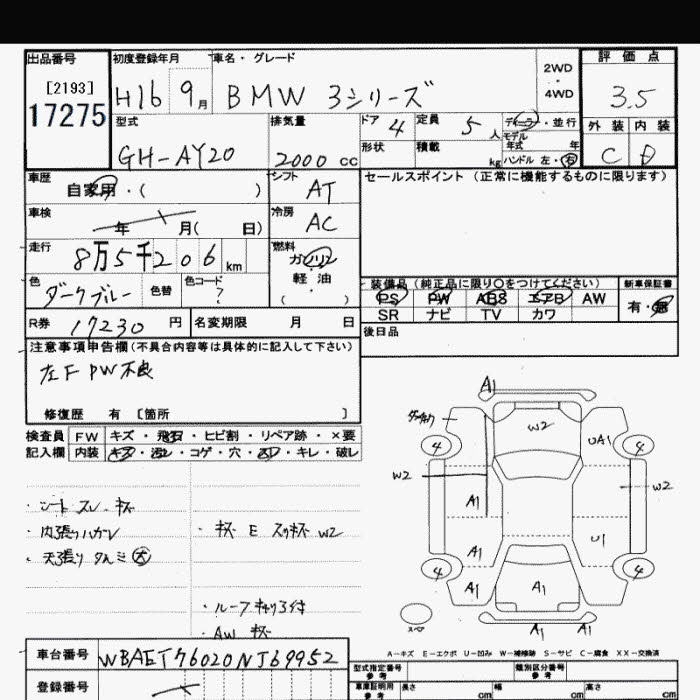 出品番号
[2193]
17275
初度登録年月
H16 9月
車名・グレード
BMW 3シリーズ
2WD
・
4WD
評価点
3.5
外装 内装
C D
型式
GH-AY20
排気量
2000 cc
ドア 4
形状
定員 5 人
積載 kg
ディーラー・並行
モデル
年式 年
ハンドル 左・右
車歴
自家用・( )
シフト
AT
セールスポイント(正常に機能するものに限ります)
車検
年 月( 日)
冷房
AC
走行
8万5千206km
燃料
ガソリン
軽・油
( )
色
ダークブルー
色替
色コード
?
装備品(純正品に限り○をつけてください)
PS PW ABS エアB AW
SR ナビ TV カワ
新車保証書
有・無
後日品
R券 17230 円
名変期限 月 日
注意事項申告欄(不具合内容等は具体的に記入して下さい)
左F PW不良
修復歴 有 [箇所 ]
検査員
記入欄
FW キズ・飛石・ヒビ割・リペア跡・×要
内装 キズ・汚レ・コゲ・穴・スレ・キレ・破レ
・シート スレ
・内張りハガレ
・天張り タルミ 大
・ E W2
・ルーフキャリア付
・AW
A1
W2
UA1
4
4
W2
W2
A1
A1
U1
4
4
A1
A1
A1
A1
スペア
A-キズ E-エクボ U-凹み W-補修跡 S-サビ C-腐食 XX-交換済
車台番号
WBAET76020NJ69952
登録番号
型式指定番号
参考
類別区分番号
参考
車庫証明用
参考
長さ cm
幅 cm
高さ cm